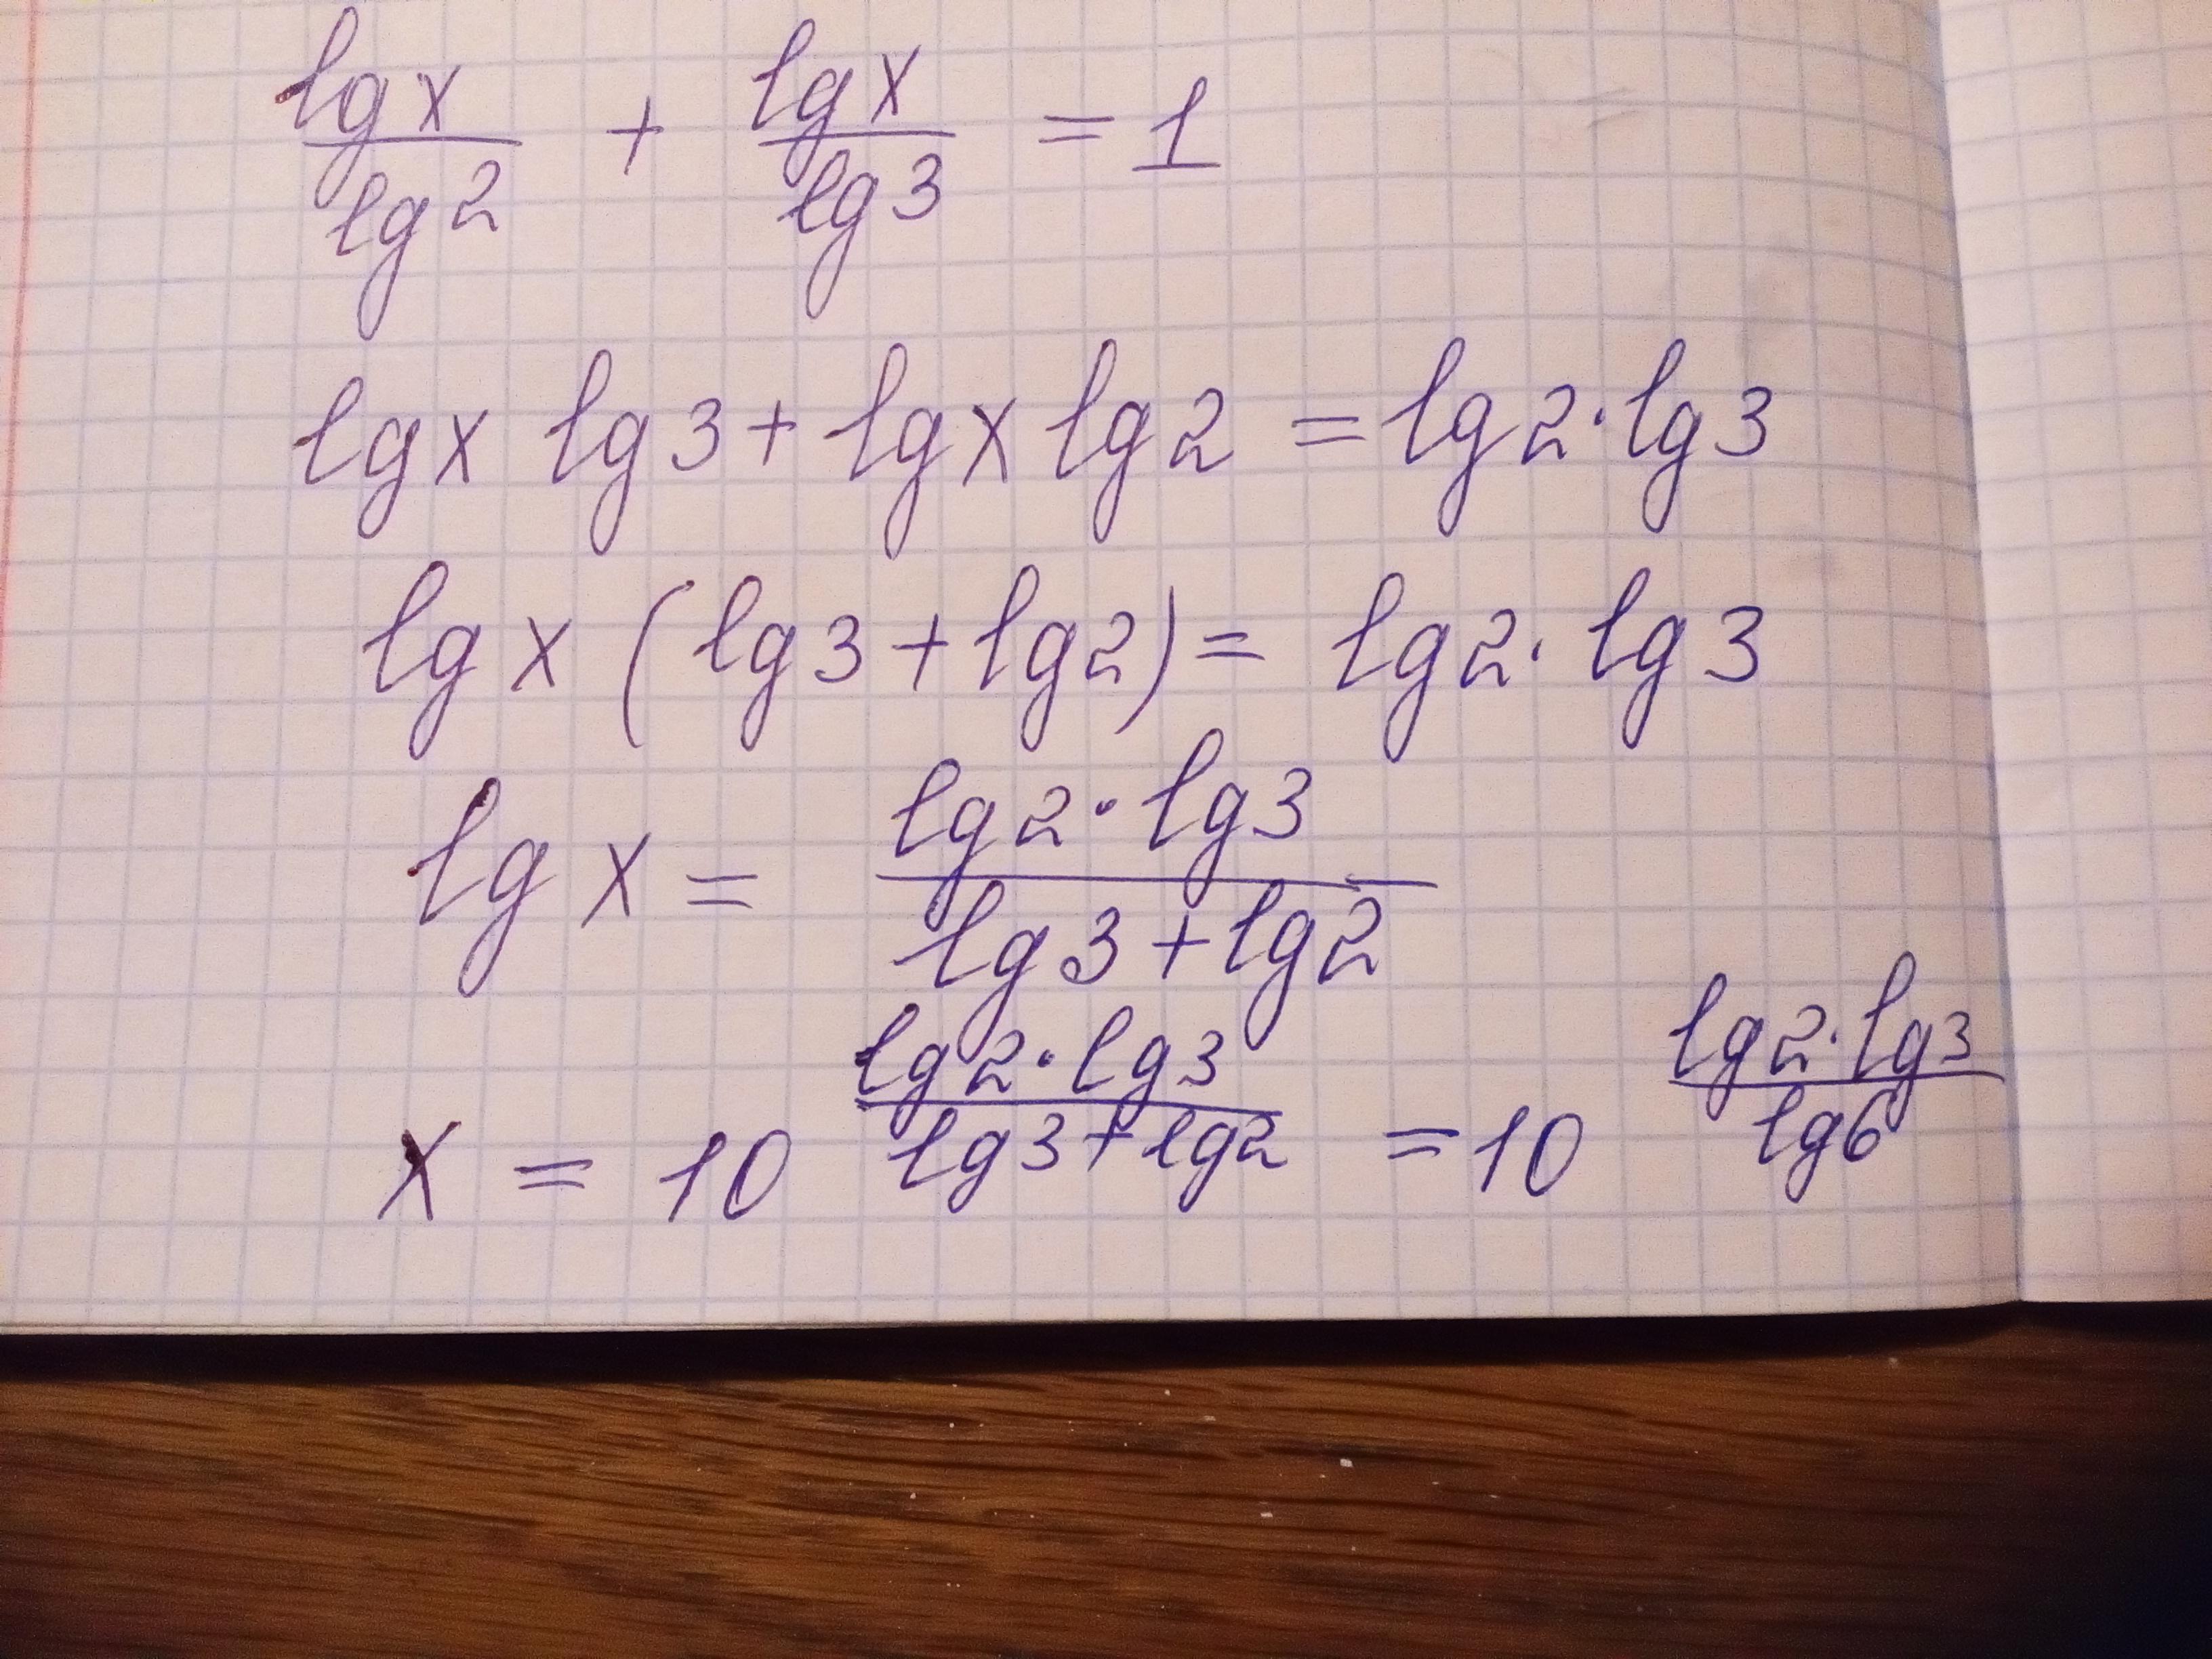 lg x / lg 2 + lg x / lg 3 = 1
lg x lg 3 + lg x lg 2 = lg 2 · lg 3
lg x (lg 3 + lg 2) = lg 2 · lg 3
lg x = lg 2 · lg 3 / lg 3 + lg 2
x = 10 lg 2 · lg 3 / lg 3 + lg 2 = 10 lg 2 · lg 3 / lg 6